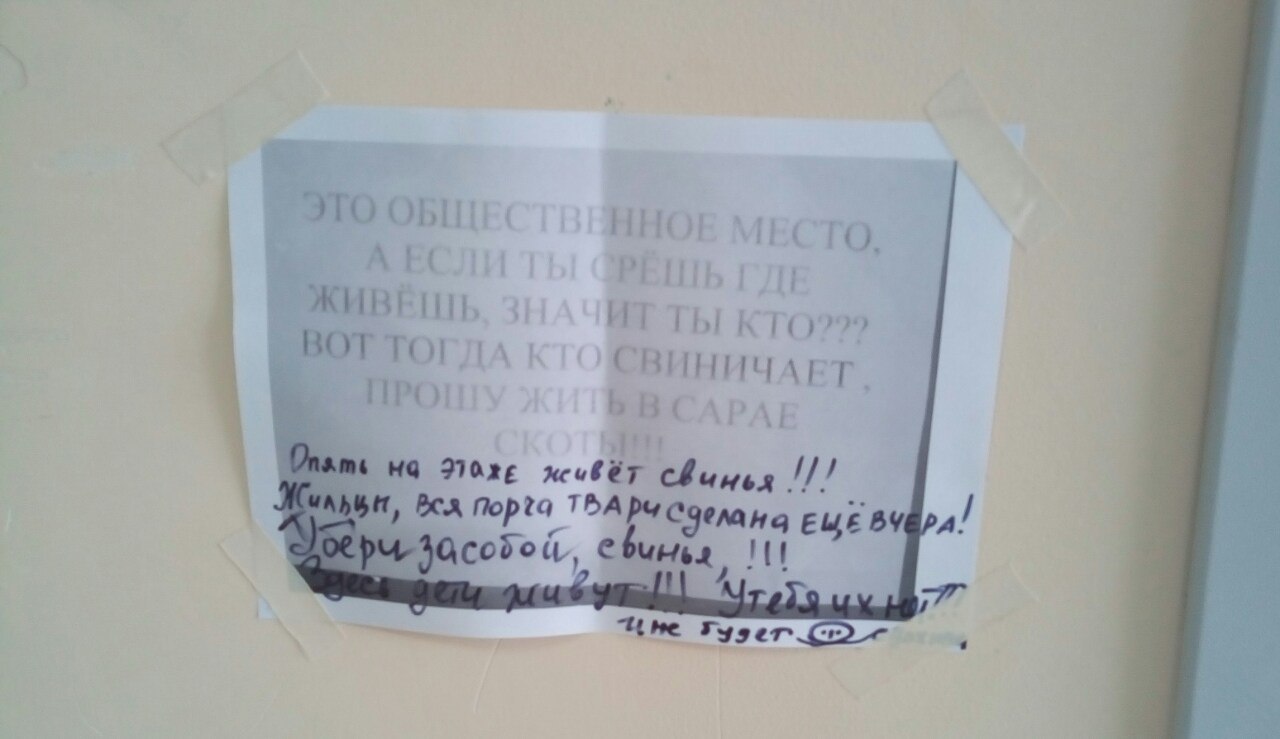 ЭТО ОБЩЕСТВЕННОЕ МЕСТО,
А ЕСЛИ ТЫ СРЁШЬ ГДЕ
ЖИВЁШЬ, ЗНАЧИТ ТЫ КТО???
ВОТ ТОГДА КТО СВИНИЧАЕТ ,
ПРОШУ ЖИТЬ В САРАЕ
СКОТЫ!!!
Опять на этаже живёт свинья!!!
Жильцы, вся порча ТВАРИ сделана ЕЩЁ ВЧЕРА!
Убери за собой, свинья, !!!
Здесь дети живут!!! У тебя их нет!!!
и не будет